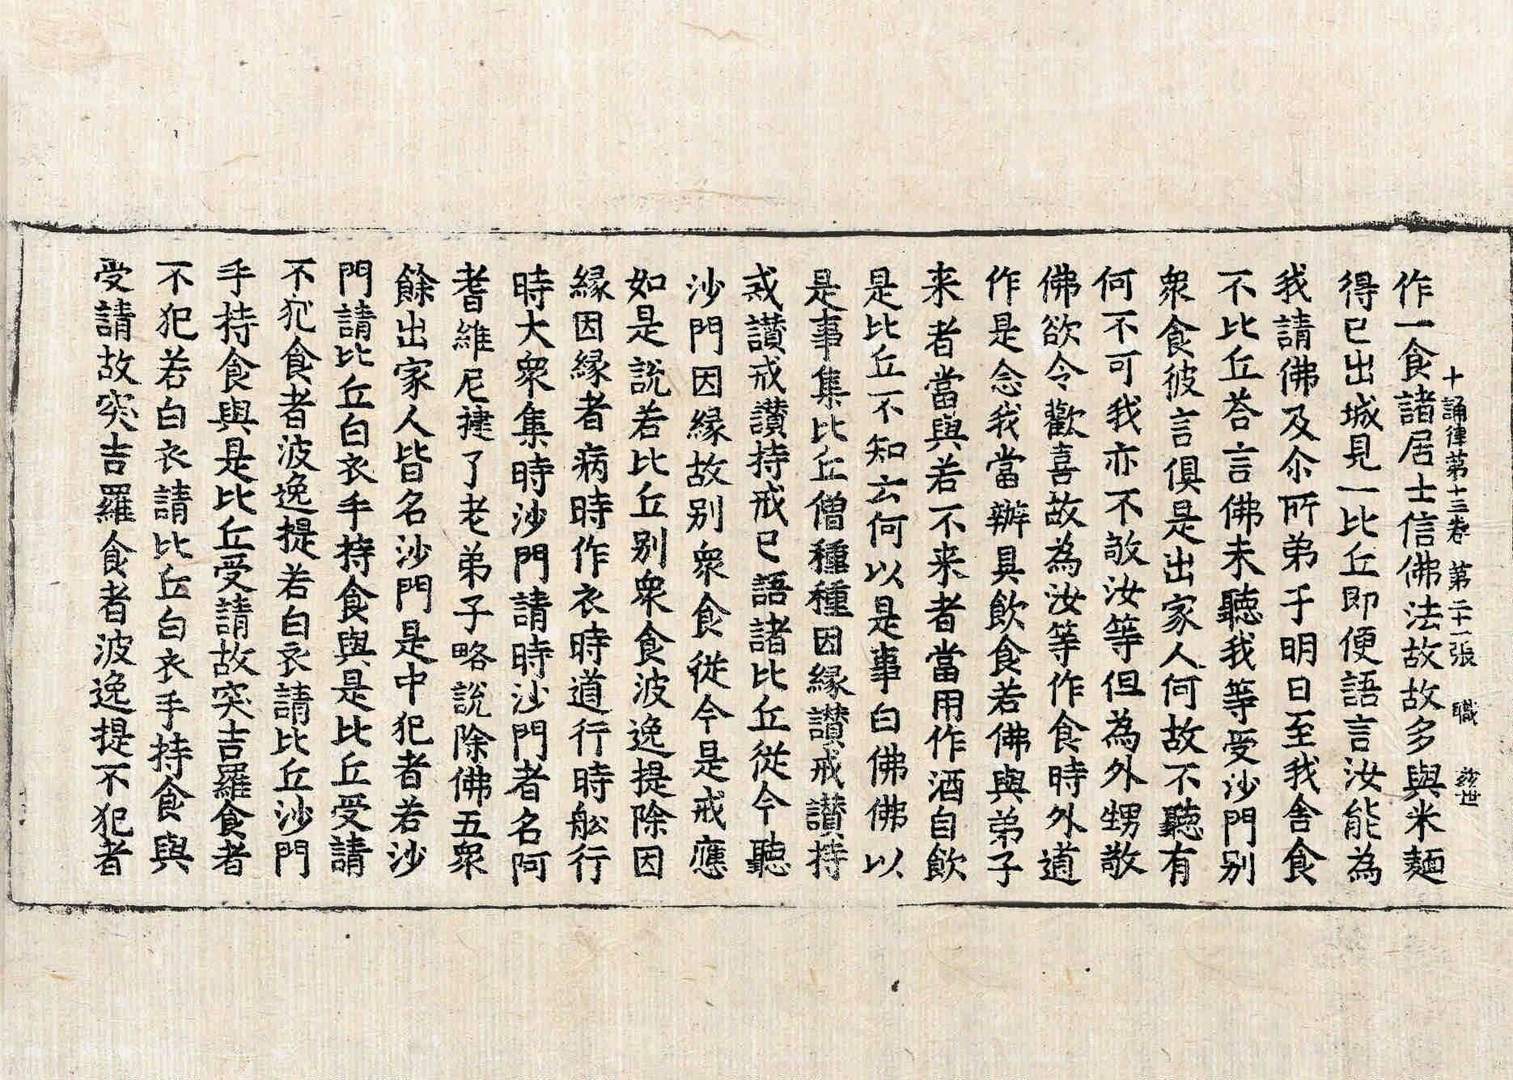 十誦律第十三卷　第二十一張　職
作一食諸居士信佛法故故多與米麵
得已出城見一比丘即便語言汝能為
我請佛及尒所弟子明日至我舍食
不比丘荅言佛未聽我等受沙門別
衆食彼言俱是出家人何故不聽有
何不可我亦不敬汝等但為外甥敬
佛欲令歡喜故為汝等作食時外道
作是念我當辦具飲食若佛與弟子
来者當與若不来者當用作酒自飲
是比丘不知云何以是事白佛佛以
是事集比丘僧種種因縁讃戒讃持
戒讃戒讃持戒已語諸比丘從今聽
沙門因縁故別衆食從今是戒應
如是說若比丘別衆食波逸提除因
縁因縁者病時作衣時道行時舩行
時大衆集時沙門請時沙門者名阿
耆維尼揵了老弟子略說除佛五衆
餘出家人皆名沙門是中犯者若沙
門請比丘白衣手持食與是比丘受請
不犯食者波逸提若白衣請比丘沙門
手持食與是比丘受請故突吉羅食者
不犯若白衣請比丘白衣手持食與
受請故突吉羅食者波逸提不犯者